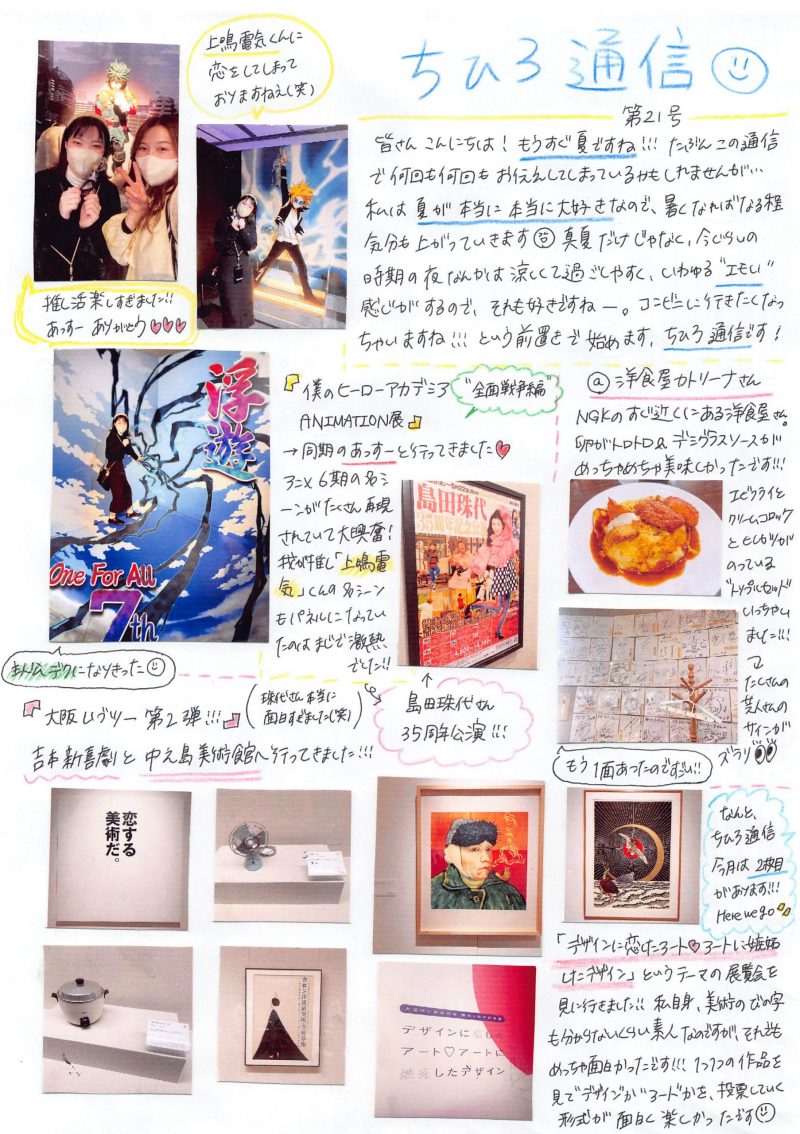 ちひろ通信
第21号
上鳴電気くんに
恋をしてしまって
おりますねえ(笑)
皆さんこんにちは！もうすぐ夏ですね!!! たぶんこの通信
で何回も何回もお伝えしてしまっているかもしれませんが…
私は夏が本当に本当に大好きなので、暑くなればなる程
気分も上がっていきます 真夏だけじゃなく、今ぐらいの
時期の夜なんかは涼しくて過ごしやすく、いわゆる"エモい"
感じがするので、それも好きですねー。コンビニに行きたくなっ
ちゃいますね!!! という前置きで始めます、ちひろ通信です！
推し活楽しすぎました!!
あっすー ありがとう♡♡♡
浮遊
One For All
7th
お茶子&デクになりきった
『僕のヒーローアカデミア
"全面戦争編"
ANIMATION展』
→同期のあっすーと行ってきました♡
アニメ6期の名シ
ーンがたくさん再現
されていて大興奮！
我が推し「上鳴電
気」くんの名シーン
もパネルになってい
たのはまじで激熱
でした!!
島田珠代
35周年記念公演
↑
島田珠代さん
35周年公演!!!
珠代さん本当に
面白すぎました(笑)
@洋食屋カトリーナさん
NGKのすぐ近くにある洋食屋さん。
卵がトロトロ&デミグラスソースが
めっちゃめちゃ美味しかったです!!!
エビフライと
クリームコロッケ
とヒレカツが
のっている
"トリプルセット"
いっちゃい
ました!!!
たくさんの
芸人さんの
サインが
ズラリ
もう1面あったのですごい!!
『大阪ぃぶツー 第2弾!!!』
吉本新喜劇と中之島美術館へ行ってきました!!!
恋する
美術だ。
デザインに恋した
アート♡アートに
嫉妬したデザイン
なんと、
ちひろ通信
今月は2枚目
があります!!!
Here we go
「デザインに恋したアート♡アートに嫉妬
したデザイン」というテーマの展覧会を
見に行きました!! 私自身、美術のびの字
も分からないくらい素人なのですが、それでも
めっちゃ面白かったです!!! 1つ1つの作品を
見て"デザイン"か"アート"かを、投票していく
形式が面白く楽しかったです